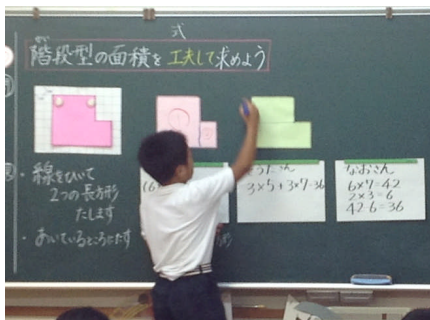 式
階段型の面積を工夫して求めよう
かい
①
②
・線をひいて
2つの長方形
たします
・あいているところにたす
3×5+3×7=36
なおさん
6×7=42
2×3=6
42-6=36